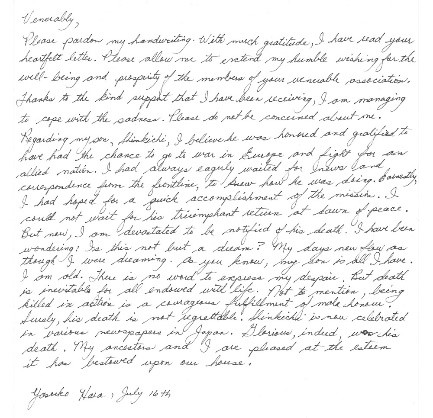 Venerably,
Please pardon my handwriting. With much gratitude, I have read your
heartfelt letter. Please allow me to extend my humble wishing for the
well-being and prosperity of the members of your venerable association.
Thanks to the kind support that I have been receiving, I am managing
to cope with the sadness. Please do not be concerned about me.
Regarding my son, Shinkichi, I believe he was honored and gratified to
have had the chance to go to war in Europe and fight for an
allied nation. I had always eagerly waited for news and
correspondence from the frontline, to know how he was doing. Earnestly,
I had hoped for a quick accomplishment of the mission. I
could not wait for his triumphant return at dawn of peace.
But now, I am devastated to be notified of his death. I have been
wondering: Is this not but a dream? My days now flow as
though I were dreaming. As you know, my son is all I have.
I am old. There is no word to express my despair. But death
is inevitable for all endowed with life. Not to mention, being
killed in action is a courageous fulfillment of male honour.
Surely, his death is not regrettable. Shinkichi is now celebrated
in various newspapers in Japan. Glorious, indeed, was his
death. My ancestors and I are pleased at the esteem
it has bestowed upon our house.
Hara, July 16th